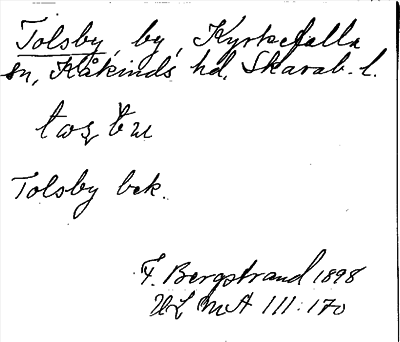 Tolsby, by, Kyrkefalla
sn, Kåkinds hd, Skarab. l.
Tolsby bek.
F. Bergstrand 1898
ULMA 111:170